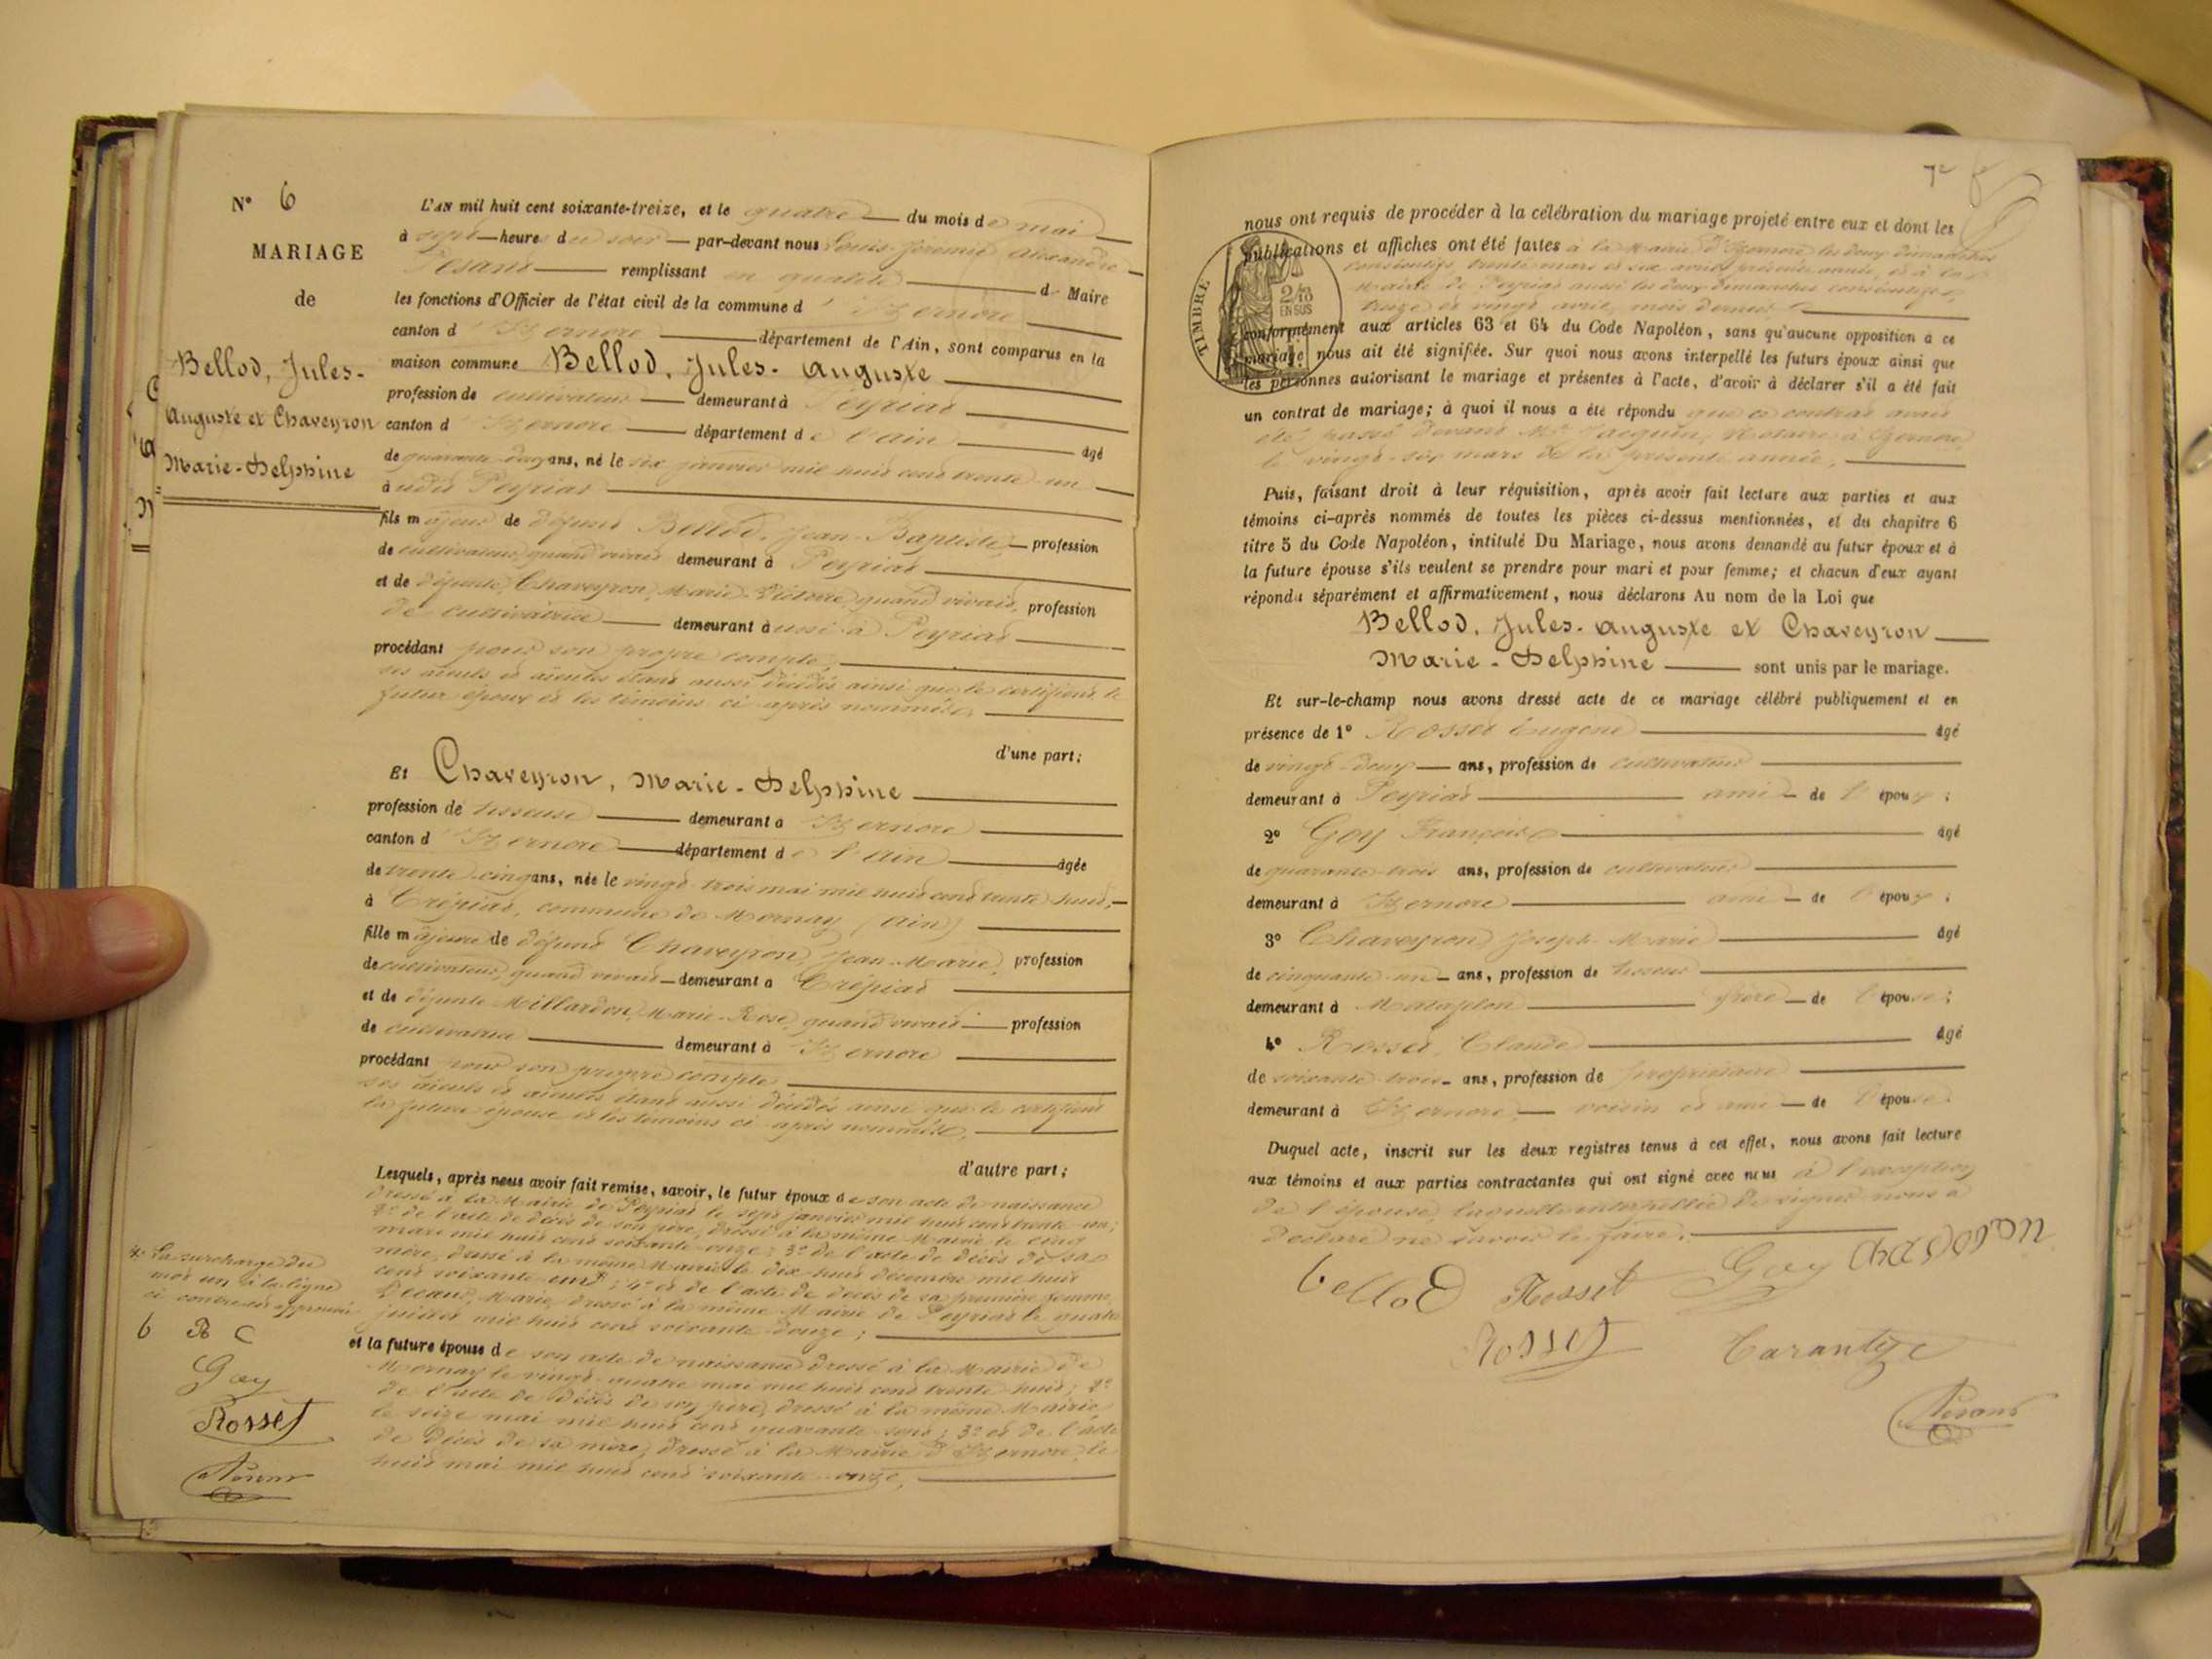 N° 6
MARIAGE
de
Bellod, Jules-
Auguste et Chaveyron
Marie-Delphine
L'AN mil huit cent soixante-treize, et le quatre du mois de mai
à sept heures du soir par-devant nous Louis Jérémie Alexandre
remplissant en qualité de Maire
les fonctions d'Officier de l'état civil de la commune d'Izernore
canton d'Izernore département de l'Ain, sont comparus en la
maison commune Bellod, Jules-Auguste
profession de cultivateur demeurant à Peyriat
canton d'Izernore département de l'Ain âgé
de quarante-deux ans, né le six janvier mil huit cent trente-un
audit Peyriat
fils majeur de défunt Bellod, Jean-Baptiste, profession
de cultivateur, quand vivait demeurant à Peyriat
et de défunte Chaveyron, Marie-Victoire, quand vivait, profession
de cultivatrice demeurant aussi à Peyriat
procédant pour son propre compte,
ses aïeuls et aïeules étant aussi décédés ainsi que le certifient le
futur époux et les témoins ci-après nommés.
d'une part;
Et Chaveyron, Marie-Delphine
profession de tisseuse demeurant à Izernore
canton d'Izernore département de l'Ain âgée
de trente-cinq ans, née le vingt-trois mai mil huit cent trente-huit,
à Crépiat, commune de Mornay (Ain)
fille majeure de défunt Chaveyron, Jean-Marie, profession
de cultivateur, quand vivait demeurant à Crépiat
et de défunte Millardon, Marie-Rose, quand vivait profession
de cultivatrice demeurant à Izernore
procédant pour son propre compte
ses aïeuls et aïeules étant aussi décédés ainsi que le certifient
la future épouse et les témoins ci-après nommés.
d'autre part;
Lesquels, après nous avoir fait remise, savoir, le futur époux de son acte de naissance
dressé à la Mairie de Peyriat le sept janvier mil huit cent trente-un;
2° de l'acte de décès de son père, dressé à la même Mairie le cinq
mars mil huit cent soixante-onze; 3° de l'acte de décès de sa
mère, dressé à la même Mairie le dix-huit décembre mil huit
cent soixante-un*; 4° et de l'acte de décès de sa première femme,
Marie, dressé à la même Mairie de Peyriat le quatre
juillet mil huit cent soixante-douze;
et la future épouse de son acte de naissance dressé à la Mairie de
Mornay le vingt-quatre mai mil huit cent trente-huit; 2°
de l'acte de décès de son père, dressé à la même Mairie
le seize mai mil huit cent quarante-sept; 3° et de l'acte
de décès de sa mère, dressé à la Mairie d'Izernore, le
huit mai mil huit cent soixante-onze,
* La surcharge du
mot un à la ligne
ci-contre est approuvée
b R C
Goy
Rosset
7e
nous ont requis de procéder à la célébration du mariage projeté entre eux et dont les
publications et affiches ont été faites à la Mairie d'Izernore les deux dimanches
consécutifs, trente mars et six avril, présente année, et à la
Mairie de Peyriat aussi les deux dimanches consécutifs,
treize et vingt avril, mois dernier
conformément aux articles 63 et 64 du Code Napoléon, sans qu'aucune opposition à ce
mariage nous ait été signifiée. Sur quoi nous avons interpellé les futurs époux ainsi que
les personnes autorisant le mariage et présentes à l'acte, d'avoir à déclarer s'il a été fait
un contrat de mariage; à quoi il nous a été répondu que ce contrat avait
été passé devant Me Jacquin, Notaire à Izernore,
le vingt-six mars de la présente année,
TIMBRE
2/10
EN SUS
Puis, faisant droit à leur réquisition, après avoir fait lecture aux parties et aux
témoins ci-après nommés de toutes les pièces ci-dessus mentionnées, et du chapitre 6
titre 5 du Code Napoléon, intitulé Du Mariage, nous avons demandé au futur époux et à
la future épouse s'ils veulent se prendre pour mari et pour femme; et chacun d'eux ayant
répondu séparément et affirmativement, nous déclarons Au nom de la Loi que
Bellod, Jules-Auguste et Chaveyron
Marie-Delphine sont unis par le mariage.
Et sur-le-champ nous avons dressé acte de ce mariage célébré publiquement et en
présence de 1° Rosset Eugène âgé
de vingt-deux ans, profession de cultivateur
demeurant à Peyriat ami de l'époux;
2° Goy François âgé
de quarante-trois ans, profession de cultivateur
demeurant à Izernore ami de l'époux;
3° Chaveyron, Joseph-Marie âgé
de cinquante-un ans, profession de tisseur
demeurant à Matafelon frère de l'épouse;
4° Rosset, Claude âgé
de soixante-trois ans, profession de propriétaire
demeurant à Izernore voisin et ami de l'épouse.
Duquel acte, inscrit sur les deux registres tenus à cet effet, nous avons fait lecture
aux témoins et aux parties contractantes qui ont signé avec nous à l'exception
de l'épouse, laquelle interpellée de signer nous a
déclaré ne savoir le faire.
bellod Rosset Goy
Rosset